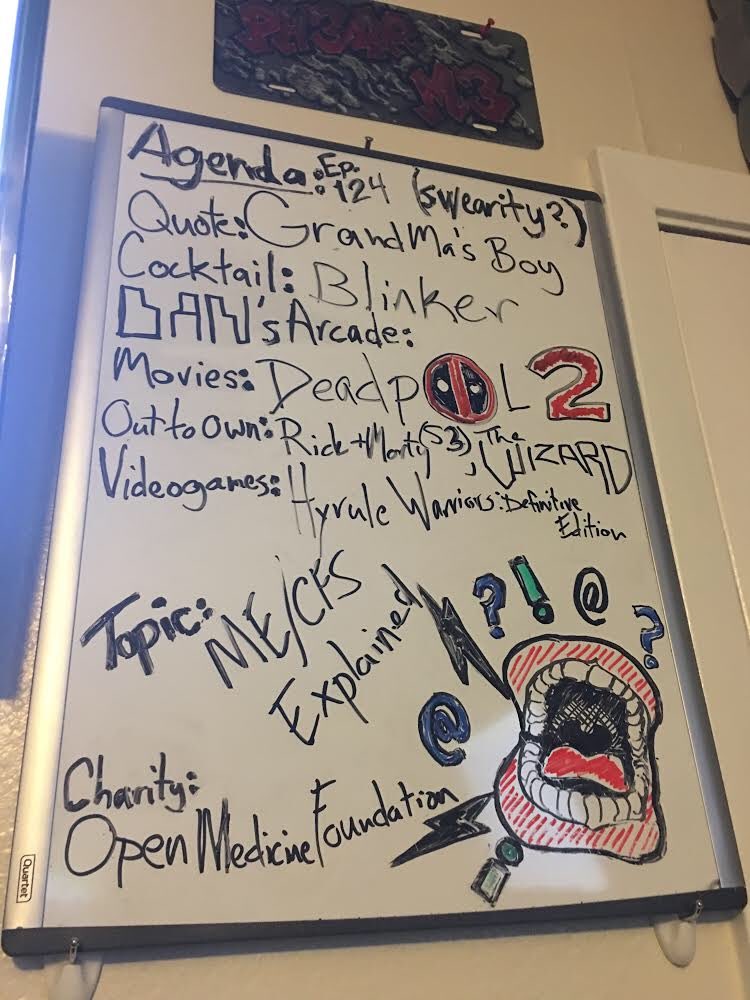 PH34R
M3
Agenda: Ep. 124 (swearity?)
Quote: GrandMa's Boy
Cocktail: Blinker
DAN's Arcade:
Movies: Deadpool 2
Out to Own: Rick + Morty (S3), The WIZARD
Videogames: Hyrule Warriors: Definitive Edition
Topic: ME/CFS Explained
? ! @ ?
@
Charity:
Open Medicine Foundation
!
Quartet